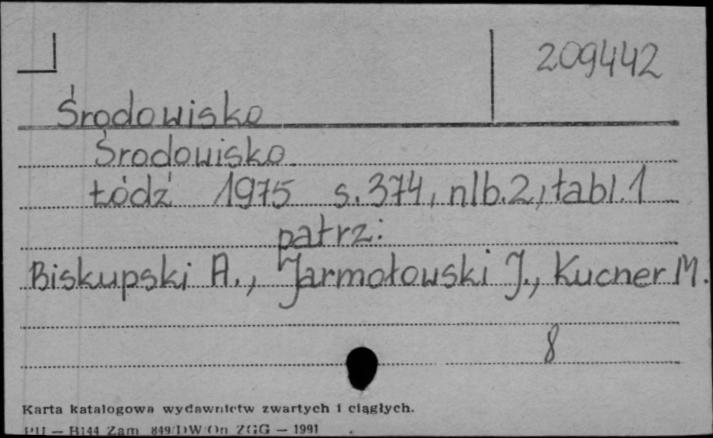 209442
Środowisko
Środowisko
Łódź 1975 s. 374, nlb. 2, tabl. 1
patrz:
Biskupski A., Jarmołowski J., Kucner M.
8
Karta katalogowa wydawnictw zwartych i ciągłych.
PU — B144 Zam. 849/DW/On ZGG — 1991